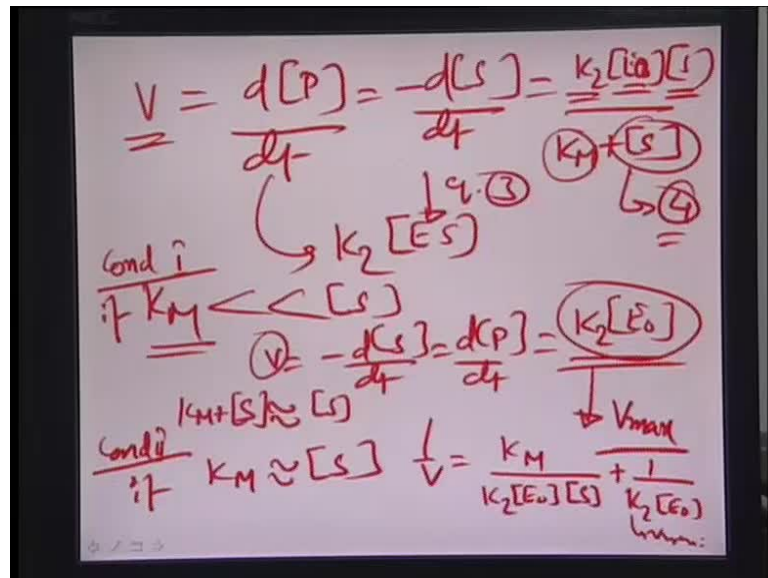 V = d[P]/dt = -d[S]/dt = K2[E0][S]/KM+[S]
q. 3
4
K2[ES]
Cond i
if KM << [S]
V = -d[S]/dt = d[P]/dt = K2[E0]
KM+[S] ≈ [S]
Vmax
Cond ii
if KM ≈ [S] 1/V = KM/K2[E0][S] + 1/K2[E0]